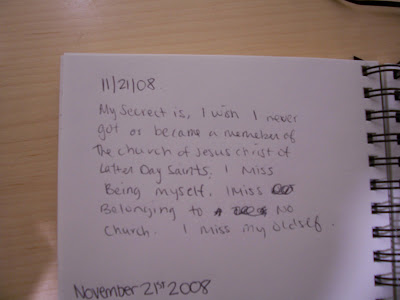 11/21/08
My Secrect is, I wish I never
got or became a memeber of
The church of Jesus christ of
Latter Day Saints. I Miss
Being myself, I Miss
Belonging to NO
Church. I miss my oldself.
November 21st 2008